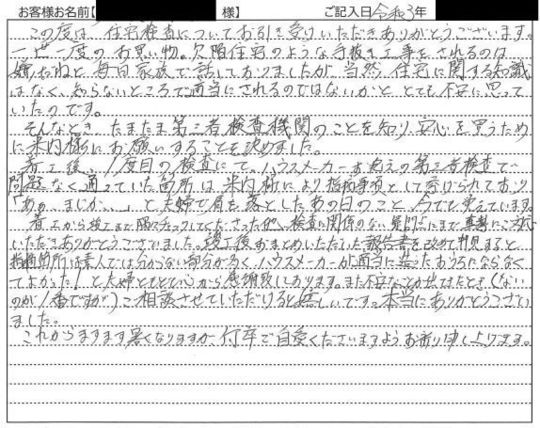 お客様お名前【 様】 ご記入日 令和3年
この度は、住宅検査についてお引き受けいただきありがとうございます。
一世一度のお買い物。欠陥住宅のような手抜き工事をされるのは
嫌だねと毎日家族で話しておりましたが、当然、住宅に関する知識
はなく、知らないところで適当にされるのではないかと、とても不安に思って
いたのです。
そんなとき、たまたま第三者検査機関のことを知り、安心を買うため
に米内様にお願いすることを決めました。
着工後、1度目の検査にて、ハウスメーカーお抱えの第三者検査で
問題なく通っていた箇所は、米内様により指摘事項として挙げられており
「あぁ、まじか、、」と夫婦で肩を落としたあの日のこと、今でも覚えています。
着工から竣工まで隅々チェックしてくださったり、検査に関係のない質問にまで真摯にご対応
いただきありがとうございました。竣工後おまとめいただいた報告書を改めて拝見すると、
指摘箇所は素人では分からない部分が多く、ハウスメーカーが適当に造ったおうちにならなく
てよかった!と夫婦ともども心から感謝致しております。また不安なことが出てきたとき(ない
のが1番ですが)ご相談させていただけると嬉しいです。本当にありがとうござい
ました。
これからますます暑くなりますが、何卒ご自愛くださいますようお祈り申し上げます。